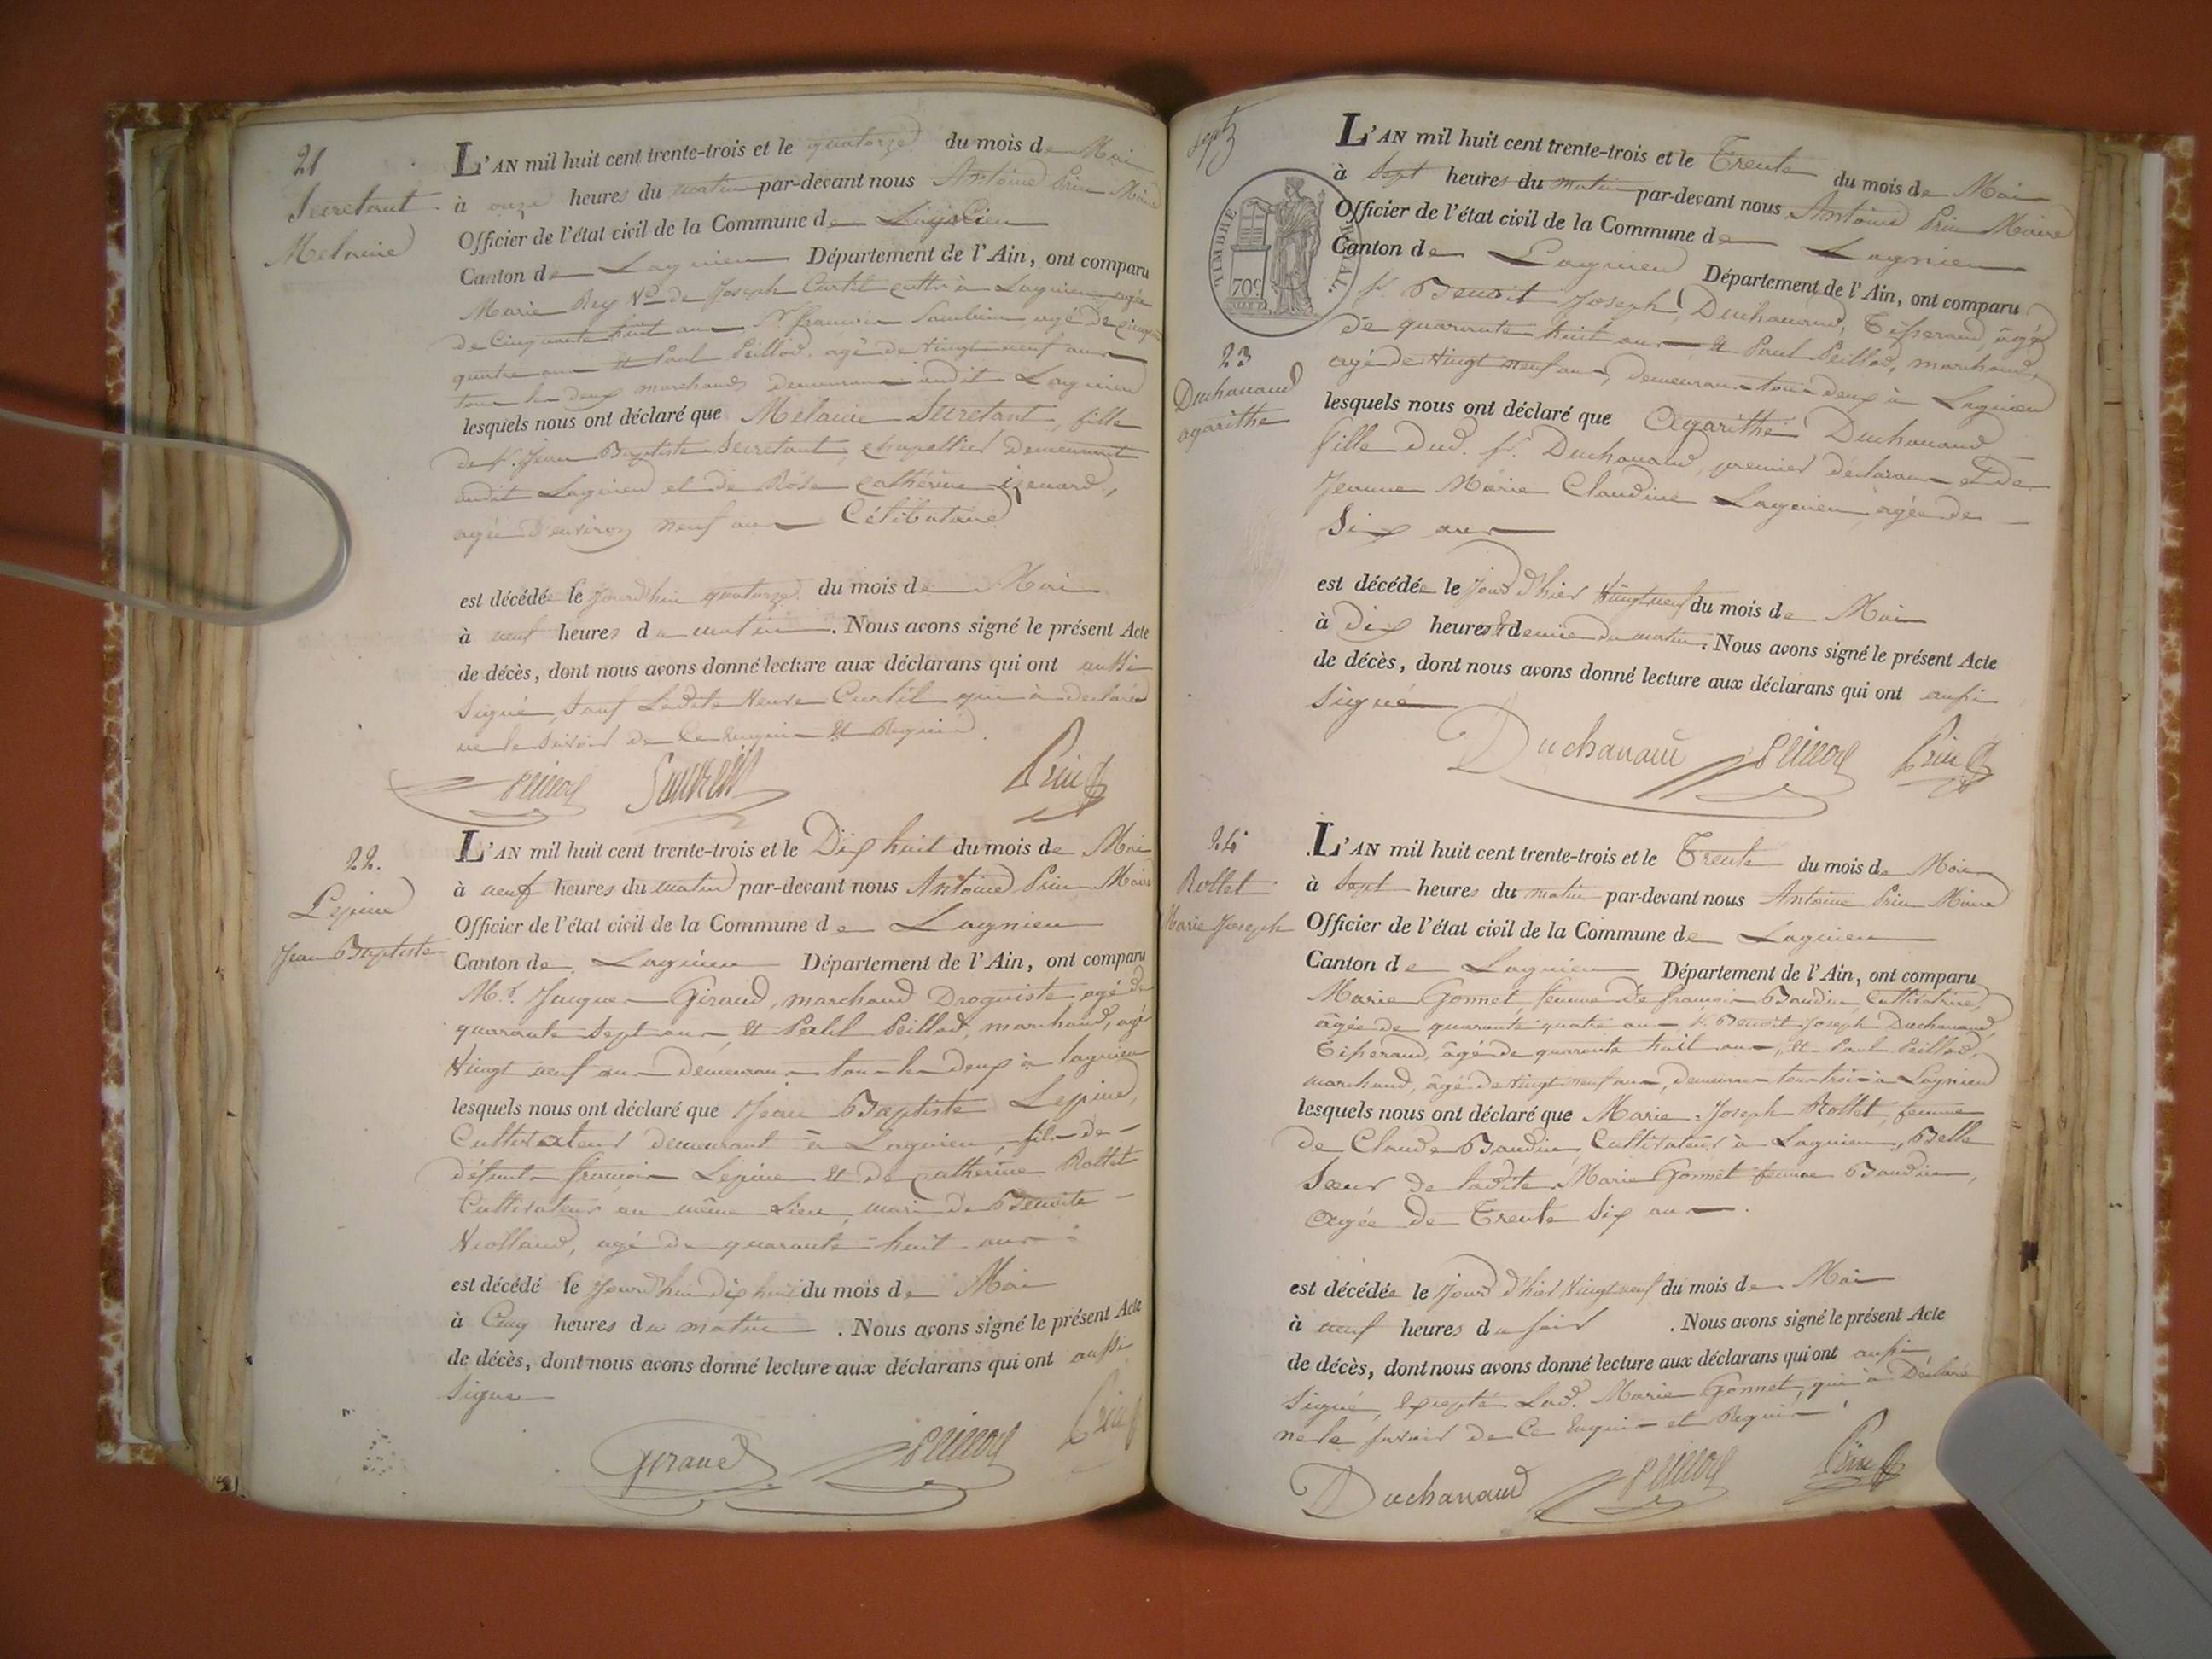 21
Secretant
Melanie
L'AN mil huit cent trente-trois et le quatorze du mois de Mai
à onze heures du matin par-devant nous Antoine Prin Maire
Officier de l'état civil de la Commune de Lagnieu
Canton de Lagnieu Département de l'Ain, ont comparu
Marie Rey Ve de Joseph Curtil cultr à Lagnieu agée
de Cinquante huit ans Sr françois agé de cinquante
quatre ans et Paul Peillod agé de vingt neuf ans
tous les deux marchands demeurans audit Lagnieu
lesquels nous ont déclaré que Melanie Secretant, fille
de sr. Jean Baptiste Secretant, chapellier demeurant
audit Lagnieu et de Rose Catherine,
agée d'environ neuf ans Célibataire
est décédée le jourd'hui quatorze du mois de Mai
à neuf heures du matin. Nous avons signé le présent Acte
de décès, dont nous avons donné lecture aux déclarans qui ont aussi
Signé, Sauf Ladite Veuve Curtil qui à declaré
ne le Savoir de Ce Enquise et Requise.
Peillod Prin
22.
Lepine
Jean Baptiste
L'AN mil huit cent trente-trois et le Dix huit du mois de Mai
à neuf heures du matin par-devant nous Antoine Prin Maire
Officier de l'état civil de la Commune de Lagnieu
Canton de Lagnieu Département de l'Ain, ont comparu
Mr. Jacques Giraud, marchand Droguiste agé de
quarante Sept ans, et Paul Peillod, marchand, agé
Vingt neuf ans demeurans tous les deux à lagnieu
lesquels nous ont déclaré que Jean Baptiste Lepine,
Cultivateur demeurant à Lagnieu, fils de
défunt françois Lepine et de Catherine Rollet
Cultivateurs au même Lieu, mari de Benoite
Violland, agé de quarante-huit ans
est décédé le jourd'hui dix huit du mois de Mai
à Cinq heures du matin. Nous avons signé le présent Acte
de décès, dont nous avons donné lecture aux déclarans qui ont aussi
Signé
Giraud Peillod Prin
Sept
TIMBRE ROYAL.
70c
23
Duchanaud
agarithe
L'AN mil huit cent trente-trois et le Trente du mois de Mai
à Sept heures du matin par-devant nous Antoine Prin Maire
Officier de l'état civil de la Commune de Lagnieu
Canton de Lagnieu Département de l'Ain, ont comparu
sr. Benoit Joseph Duchanaud, Tisserand, âgé
de quarante huit ans et Paul Peillod, marchand,
agé de Vingt neuf ans, demeurans tous deux à Lagnieu
lesquels nous ont déclaré que Agarithe Duchanaud
fille dud. sr. Duchanaud, premier déclarant et de
Jeanne Marie Claudine Lagnieu, agée de
Six ans
est décédée le jour d'hier Vingt neuf du mois de Mai
à dix heures et demie du matin. Nous avons signé le présent Acte
de décès, dont nous avons donné lecture aux déclarans qui ont aussi
signé
Duchanaud Peillod Prin
24
Rollet
Marie Joseph
L'AN mil huit cent trente-trois et le Trente du mois de Mai
à Sept heures du matin par-devant nous Antoine Prin Maire
Officier de l'état civil de la Commune de Lagnieu
Canton de Lagnieu Département de l'Ain, ont comparu
Marie Gonnet, femme de françois Baudin, Cultivatrice,
âgée de quarante quatre ans, sr. Benoit Joseph Duchanaud,
Tisserand, âgé de quarante huit ans, et Paul Peillod,
marchand, âgé de vingt neuf ans, demeurans tous trois à Lagnieu
lesquels nous ont déclaré que Marie-Joseph Rollet, femme
de Claude Baudin, Cultivateur à Lagnieu, Belle
Sœur de ladite Marie Gonnet femme Baudin,
Agée de Trente Six ans.
est décédée le jour d'hier Vingt neuf du mois de Mai
à neuf heures du soir. Nous avons signé le présent Acte
de décès, dont nous avons donné lecture aux déclarans qui ont aussi
Signé, Excepté Lad. Marie Gonnet, qui à Déclaré
ne le savoir de Ce Enquise et Requise.
Duchanaud Peillod Prin